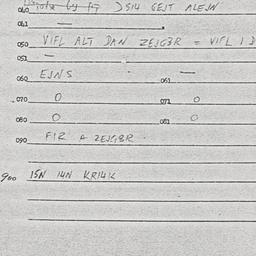 040 ) SIU GEJT ALEJN
041 —
050 VIFL ALT DAN ZEJGER = VIFL I D
051 —
060 EJNS 061 —
070 O 071 O
080 O 081 O
090 FIR A ZEJGER.
900 ISN 14N KRI4K